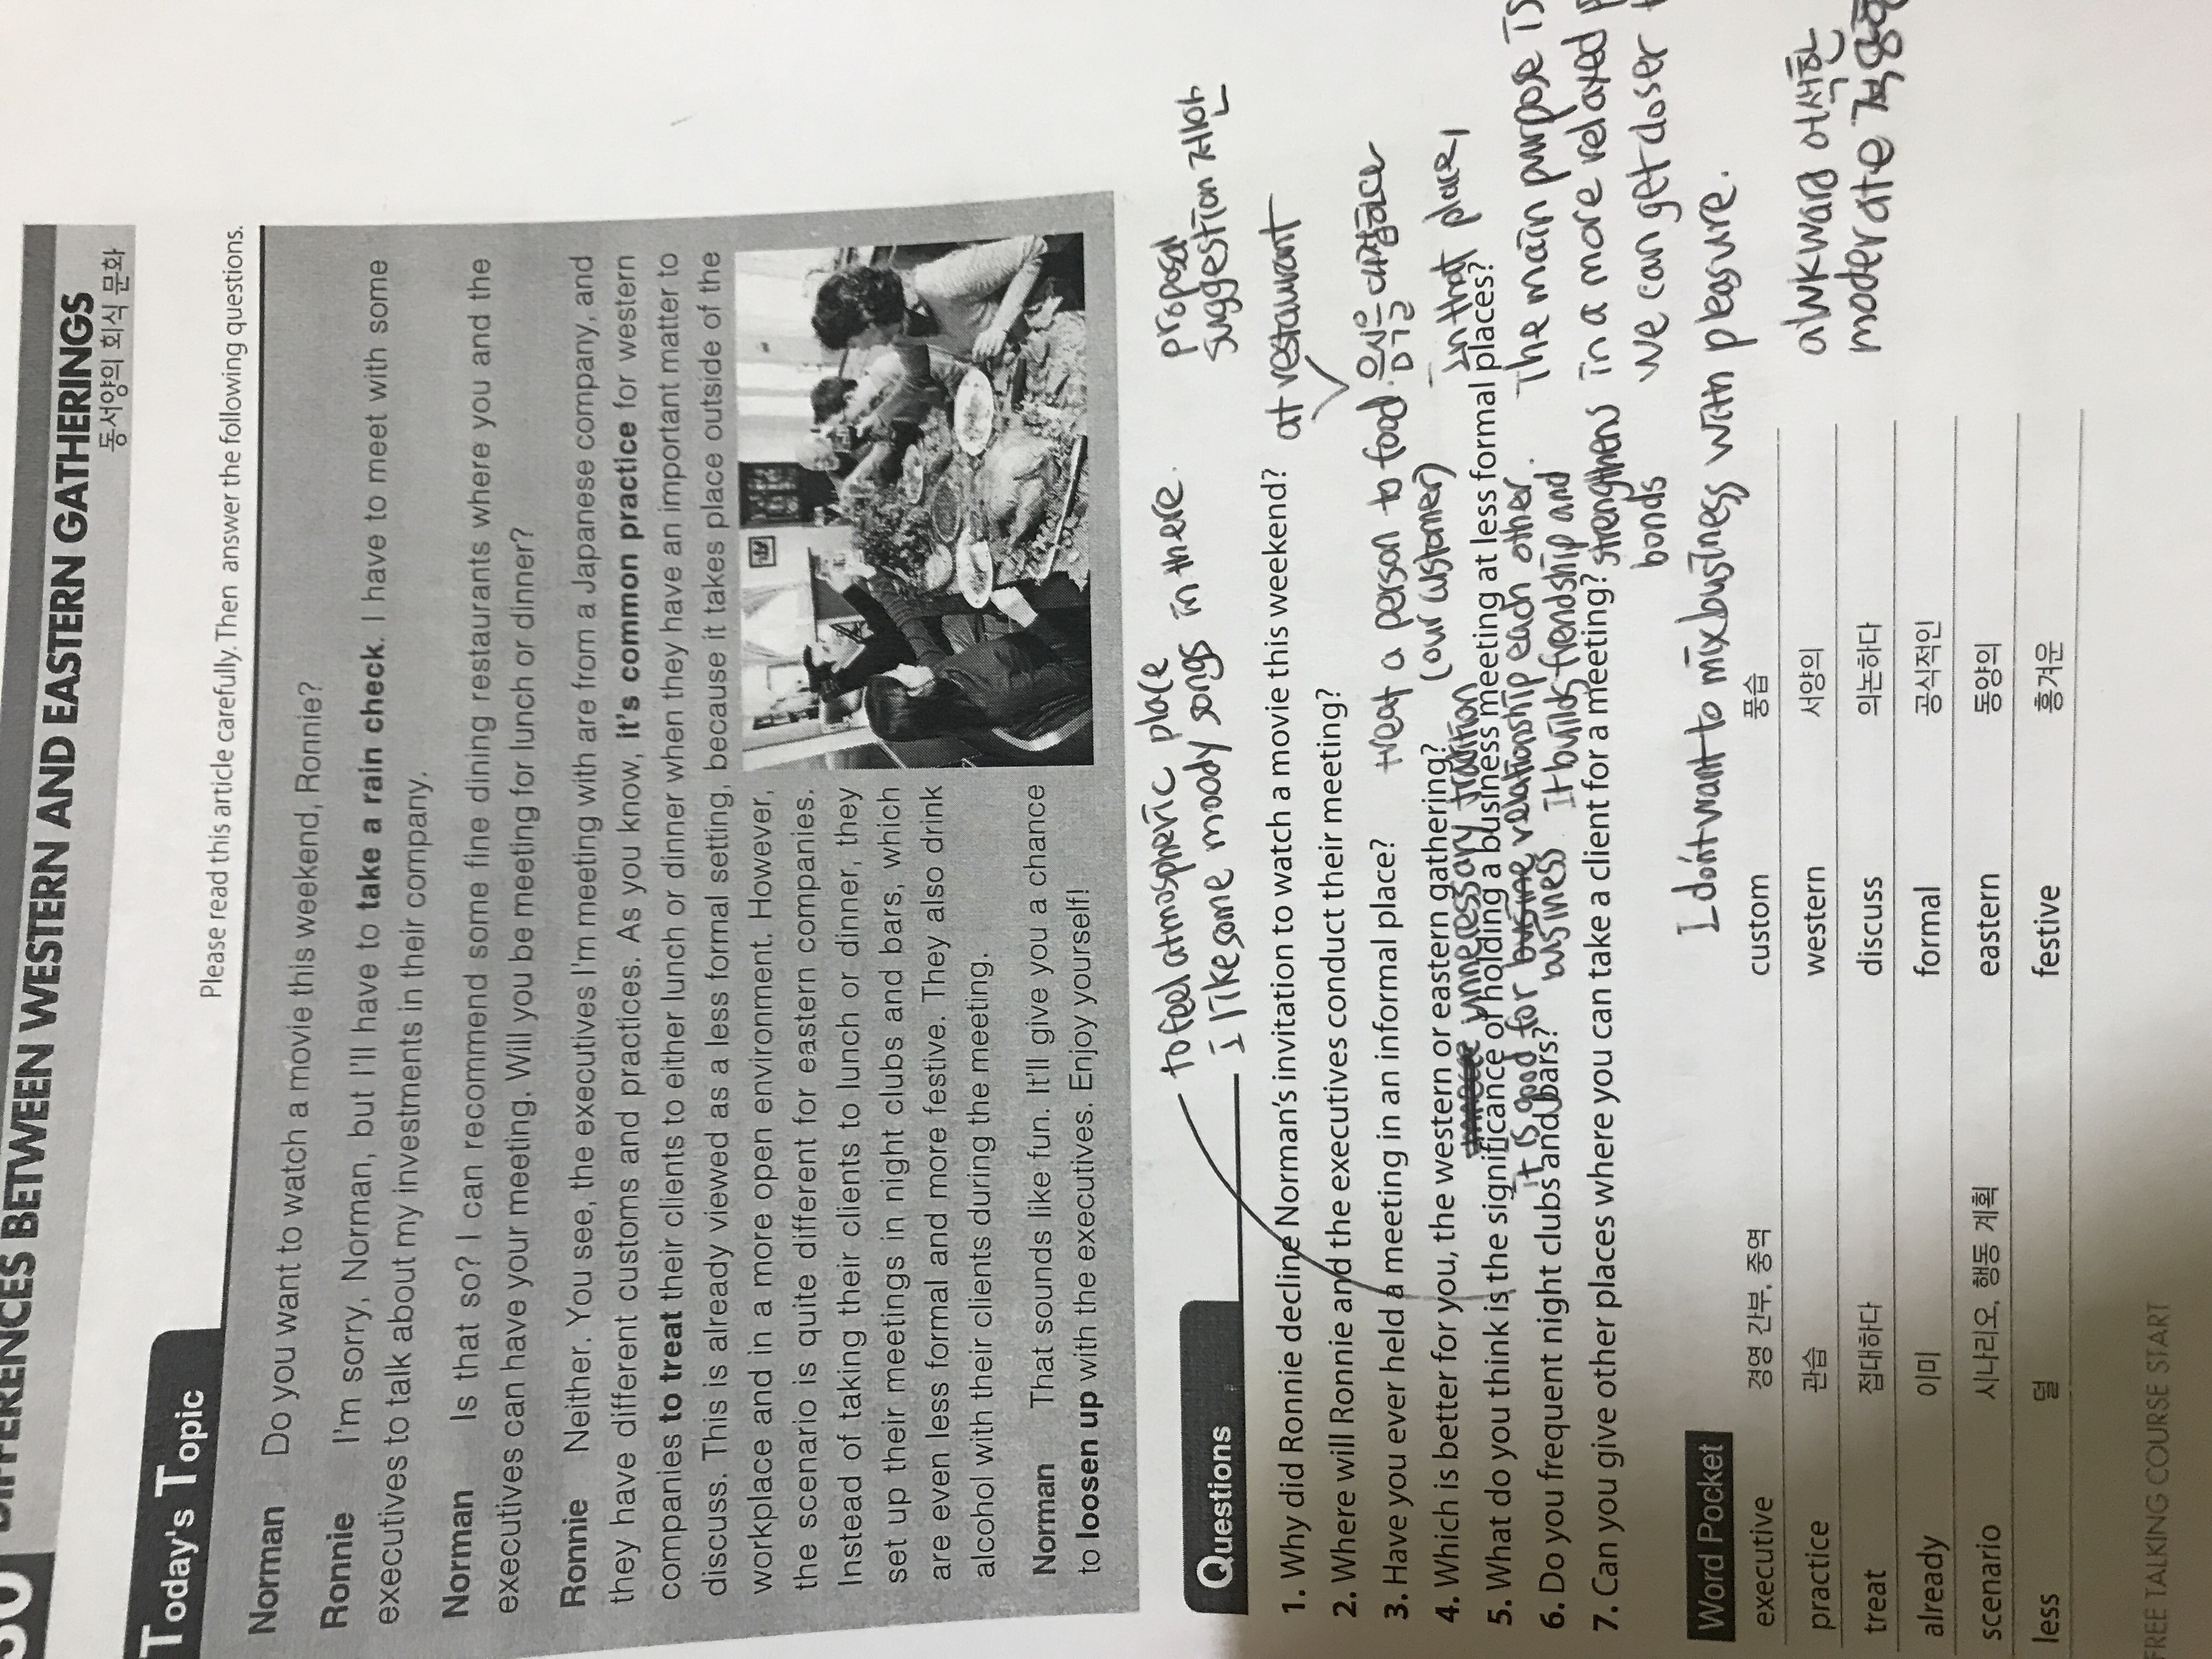 DIFFERENCES BETWEEN WESTERN AND EASTERN GATHERINGS
동서양의 회식 문화
Today's Topic
Please read this article carefully. Then answer the following questions.
Norman Do you want to watch a movie this weekend, Ronnie?
Ronnie I'm sorry, Norman, but I'll have to take a rain check. I have to meet with some
executives to talk about my investments in their company.
Norman Is that so? I can recommend some fine dining restaurants where you and the
executives can have your meeting. Will you be meeting for lunch or dinner?
Ronnie Neither. You see, the executives I'm meeting with are from a Japanese company, and
they have different customs and practices. As you know, it's common practice for western
companies to treat their clients to either lunch or dinner when they have an important matter to
discuss. This is already viewed as a less formal setting, because it takes place outside of the
workplace and in a more open environment. However,
the scenario is quite different for eastern companies.
Instead of taking their clients to lunch or dinner, they
set up their meetings in night clubs and bars, which
are even less formal and more festive. They also drink
alcohol with their clients during the meeting.
Norman That sounds like fun. It'll give you a chance
to loosen up with the executives. Enjoy yourself!
to feel atmospheric place
I like some moody songs in there.
proposal
suggestion 제안
Questions
1. Why did Ronnie decline Norman's invitation to watch a movie this weekend?
at restaurant
2. Where will Ronnie and the executives conduct their meeting?
3. Have you ever held a meeting in an informal place?
treat a person to food. 음식을 대접
(our customer)
4. Which is better for you, the western or eastern gathering?
unnecessary tradition
in that place,
5. What do you think is the significance of holding a business meeting at less formal places?
it is good for relationship each other.
business It builds friendship and
strengthens
bonds
The main purpose is
in a more relaxed
we can get closer
6. Do you frequent night clubs and bars?
7. Can you give other places where you can take a client for a meeting?
I don't want to mix business with pleasure.
awkward 어색한
moderate
Word Pocket
executive 경영 간부, 중역 custom 풍습
practice 관습 western 서양의
treat 접대하다 discuss 의논하다
already 이미 formal 공식적인
scenario 시나리오, 행동 계획 eastern 동양의
less 덜 festive 흥겨운
FREE TALKING COURSE START